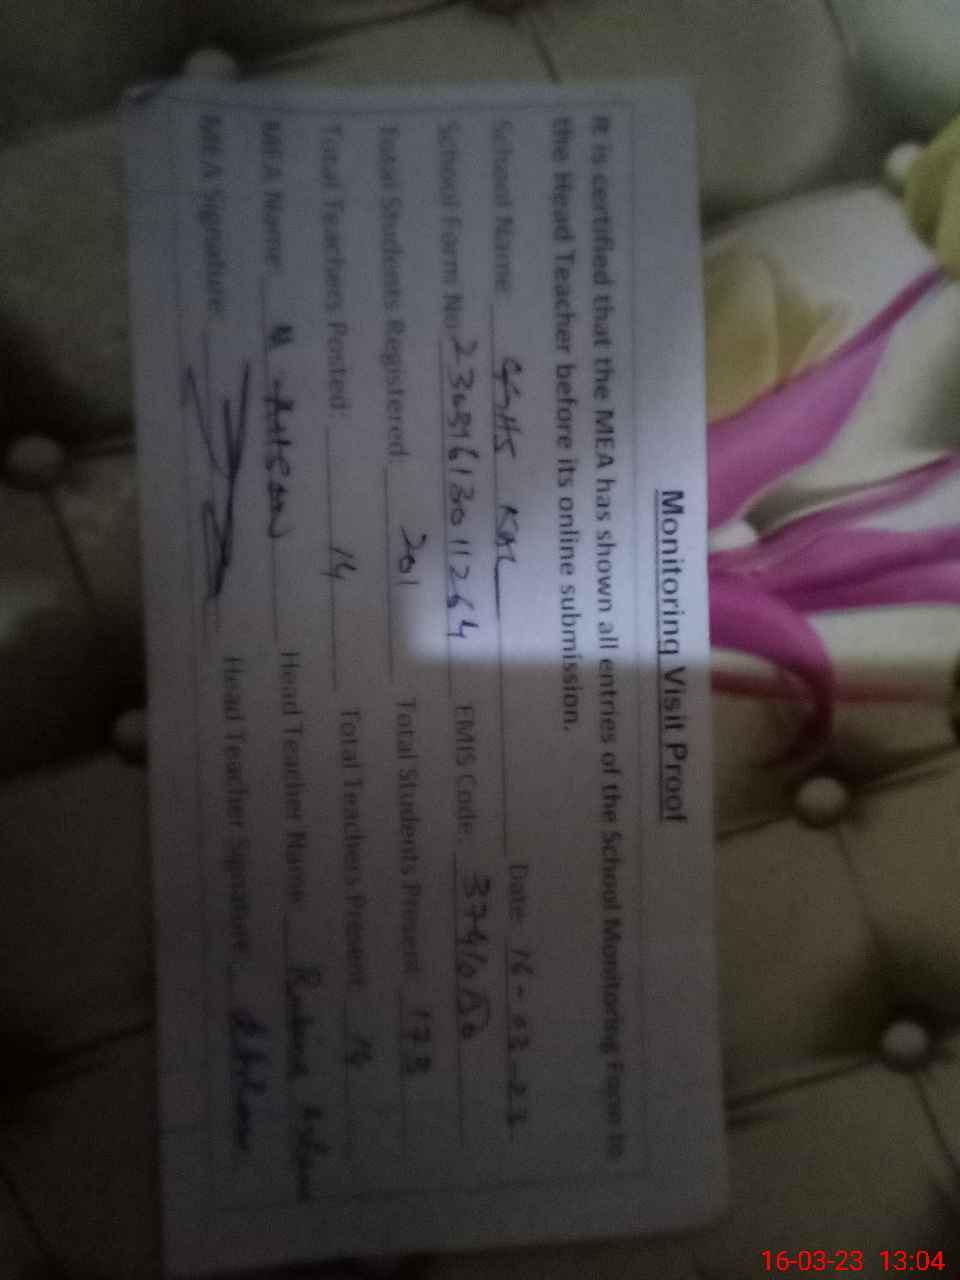 Monitoring Visit Proof
It is certified that the MEA has shown all entries of the School Monitoring Form to
the Head Teacher before its online submission.
School Name: GGHS KAL Date: 16-03-23
School Form No. EMIS Code:
Total Students Registered: 201 Total Students Present 173
Total Teachers Posted: 14 Total Teachers Present
MEA Name: Head Teacher Name: Rubina
MEA Signature: Head Teacher Signature:
16-03-23 13:04